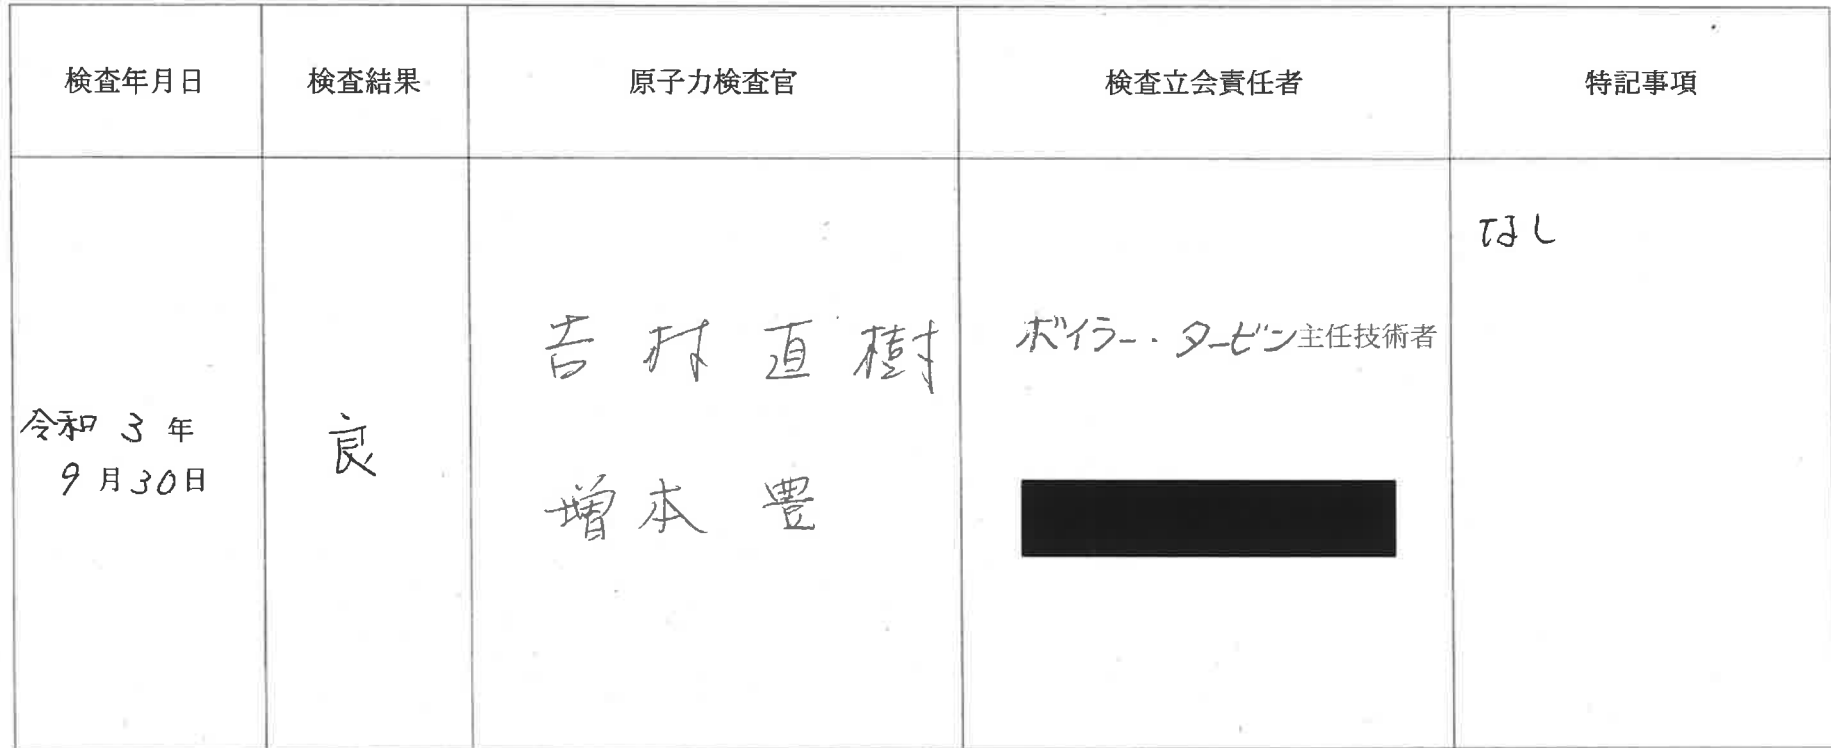 検査年月日 検査結果 原子力検査官 検査立会責任者 特記事項
令和 3 年
9 月 30 日
良
吉村 直樹
増本 豊
ボイラー・タービン主任技術者
なし